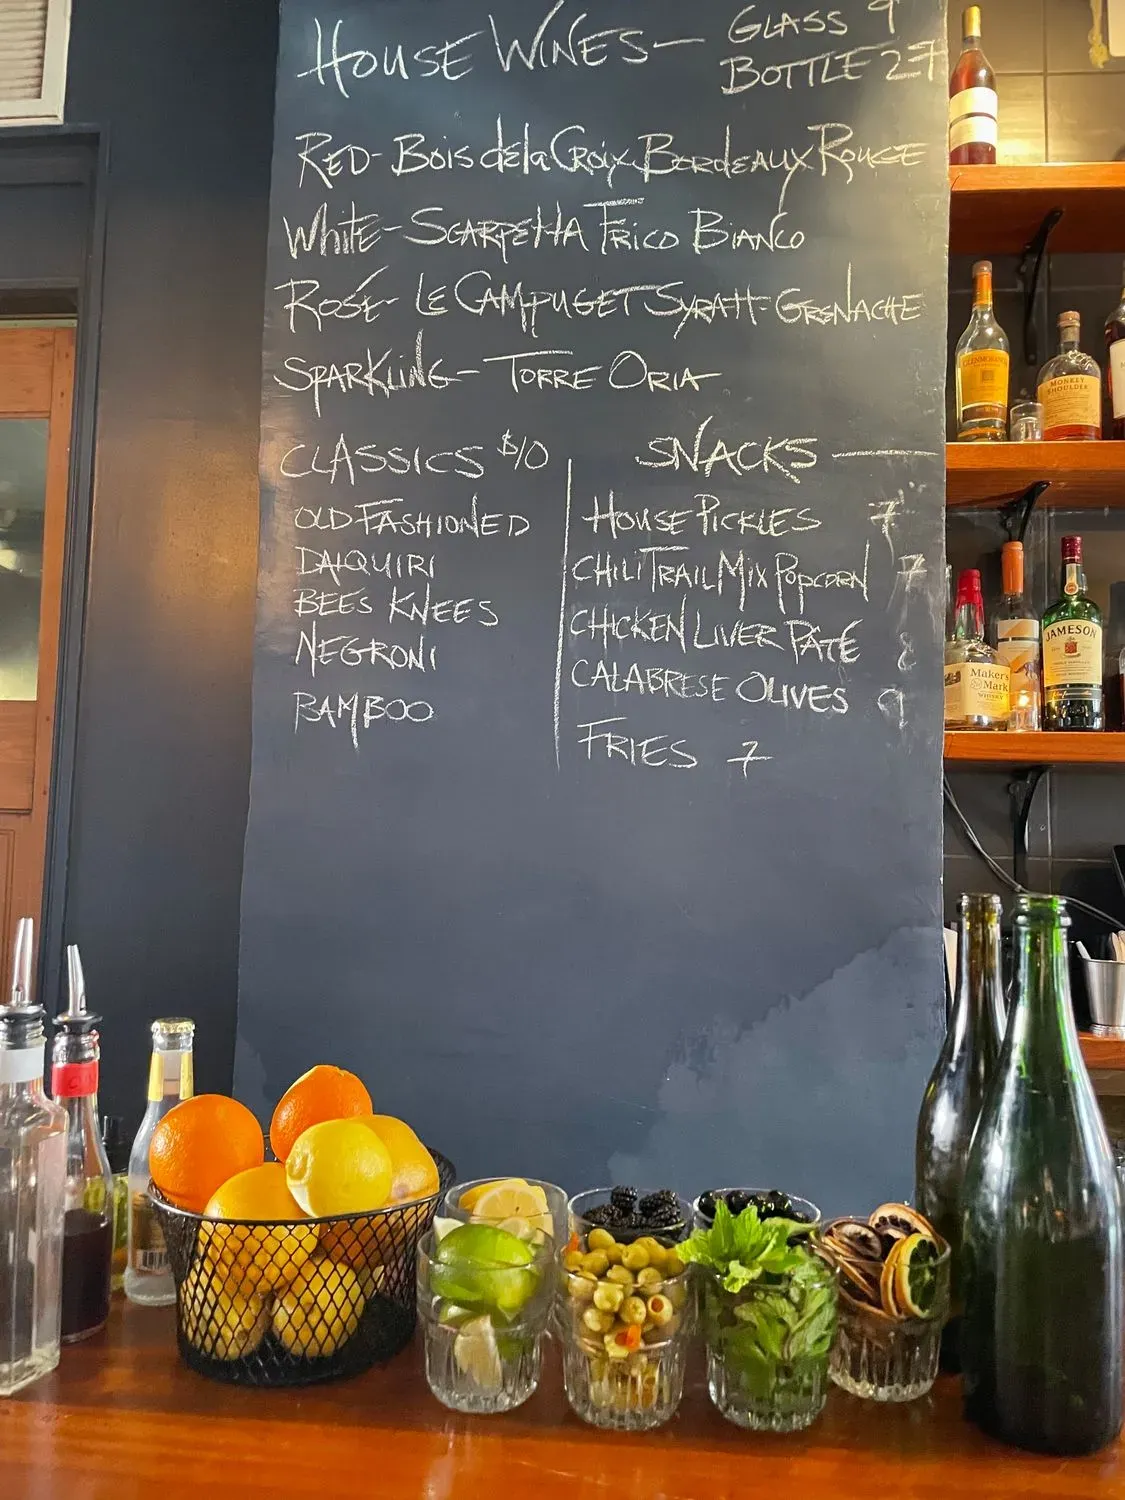 HOUSE WINES— GLASS 9
BOTTLE 27
RED- BOIS de la CROIX BORDEAUX ROUGE
WHITE- SCARPETTA FRICO BIANCO
ROSÉ- LE CAMPUGET SYRAH-GRENACHE
SPARKLING- TORRE ORIA
CLASSICS $10
OLD FASHIONED
DAIQUIRI
BEES KNEES
NEGRONI
BAMBOO
SNACKS —
HOUSE PICKLES 7
CHILI TRAIL MIX POPCORN 7
CHICKEN LIVER PATÉ 8
CALABRESE OLIVES 9
FRIES 7
GLENMORANGIE
MONKEY
SHOULDER
Maker's
Mark
WHISKY
JAMESON